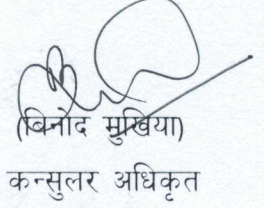 (बिनोद मुखिया)
कन्सुलर अधिकृत